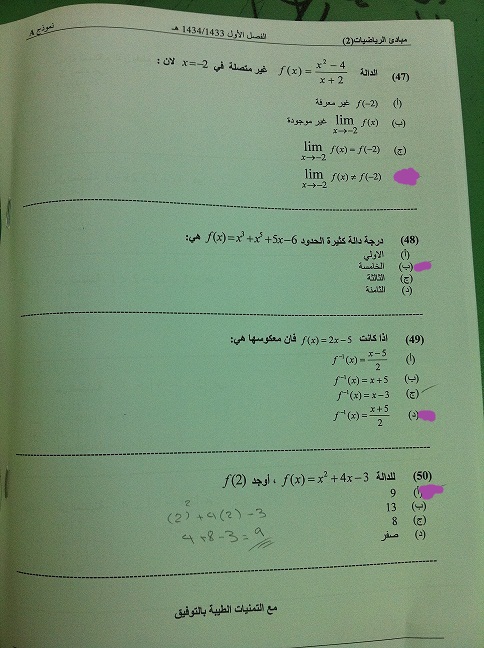 مبادئ الرياضيات(2) الفصل الأول 1434/1433 هـ نموذج A
(47) الدالة f(x) = \frac{x² − 4}{x + 2} غير متصلة في x=−2 لان :
(أ) f(−2) غير معرفة
(ب) lim_{x→−2} f(x) غير موجودة
(ج) lim_{x→−2} f(x) = f(−2)
lim_{x→−2} f(x) ≠ f(−2)
(48) درجة دالة كثيرة الحدود f(x)=x³+x⁵+5x−6 هي:
(أ) الاولي
(ب) الخامسة
(ج) الثالثة
(د) الثامنة
(49) اذا كانت f(x)=2x−5 فان معكوسها هي:
(أ) f⁻¹(x)=\frac{x−5}{2}
(ب) f⁻¹(x)=x+5
(ج) f⁻¹(x)=x−3
(د) f⁻¹(x)=\frac{x+5}{2}
(50) للدالة f(x)=x²+4x−3 ، أوجد f(2)
(أ) 9
(ب) 13
(ج) 8
(د) صفر
(2)² + 4(2) − 3
4+8−3=9
مع التمنيات الطيبة بالتوفيق